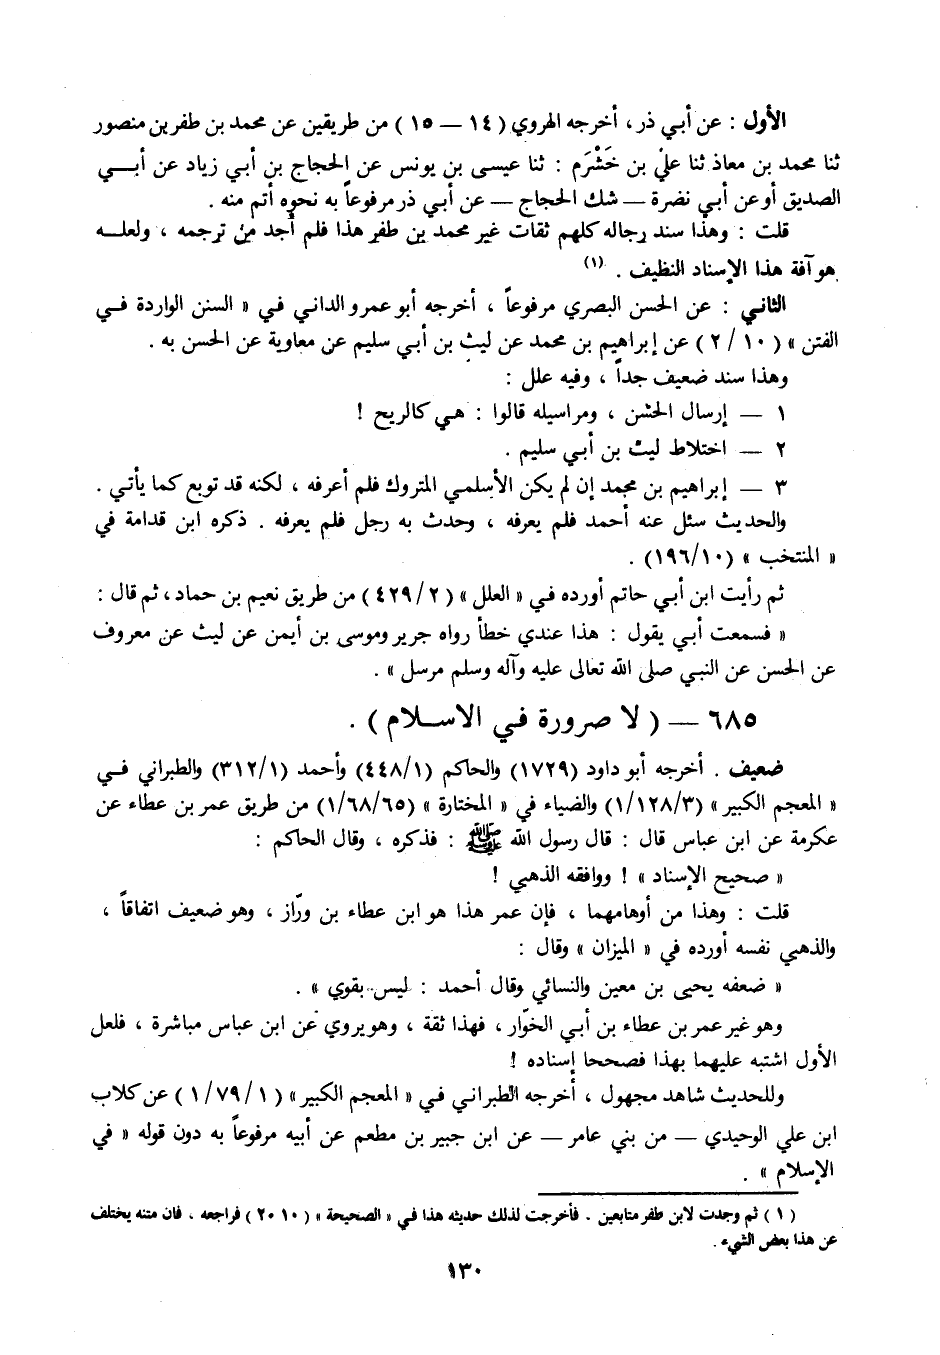 الأول : عن أبي ذر ، أخرجه الهروي ( ١٤ — ١٥ ) من طريقين عن محمد بن طفر بن منصور
ثنا محمد بن معاذ ثنا عليْ بن خَشْرَم : ثنا عيسى بن يونس عن الحجاج بن أبي زياد عن أبـــي
الصديق أو عن أبي نضرة — شك الحجاج — عن أبي ذر مرفوعاً به نحوه أتم منه .
قلت : وهذا سند رجاله كلهم ثقات غير محمد بن طفر هذا فلم أجد من ترجمه ، ولعلــه
هو آفة هذا الإسناد النظيف . (١)
الثاني : عن الحسن البصري مرفوعاً ، أخرجه أبو عمرو الداني في « السنن الواردة فــي
الفتن » ( ١٠ / ٢ ) عن إبراهيم بن محمد عن ليث بن أبي سليم عن معاوية عن الحسن به .
وهذا سند ضعيف جداً ، وفيه علل :
١ — إرسال الحسن ، ومراسيله قالوا : هي كالريح !
٢ — اختلاط ليث بن أبي سليم .
٣ — إبراهيم بن محمد إن لم يكن الأسلمي المتروك فلم أعرفه ، لكنه قد توبع كما يأتي .
والحديث سئل عنه أحمد فلم يعرفه ، وحدث به رجل فلم يعرفه . ذكره ابن قدامة في
« المنتخب » (١٩٦/١٠) .
ثم رأيت ابن أبي حاتم أورده في « العلل » ( ٤٢٩/٢ ) من طريق نعيم بن حماد ، ثم قال :
« فسمعت أبي يقول : هذا عندي خطأ رواه جرير وموسى بن أيمن عن ليث عن معروف
عن الحسن عن النبي صلى الله تعالى عليه وآله وسلم مرسل » .
٦٨٥ — ( لا صرورة في الاسـلام ) .
ضعيف . أخرجه أبو داود (١٧٢٩) والحاكم (٤٤٨/١) وأحمد (٣١٢/١) والطبراني فــي
« المعجم الكبير » (١/١٢٨/٣) والضياء في « المختارة » (١/٦٨/٦٥) من طريق عمر بن عطاء عن
عكرمة عن ابن عباس قال : قال رسول الله ﷺ : فذكره ، وقال الحاكم :
« صحيح الإسناد » ! ووافقه الذهبي !
قلت : وهذا من أوهامهما ، فإن عمر هذا هو ابن عطاء بن ورّاز ، وهو ضعيف اتفاقاً ،
والذهبي نفسه أورده في « الميزان » وقال :
« ضعفه يحيى بن معين والنسائي وقال أحمد : ليس بقوي » .
وهو غير عمر بن عطاء بن أبي الخوّار ، فهذا ثقة ، وهو يروي عن ابن عباس مباشرة ، فلعل
الأول اشتبه عليهما بهذا فصححا إسناده !
وللحديث شاهد مجهول ، أخرجه الطبراني في « المعجم الكبير » ( ١ / ٧٩ / ١ ) عن كلاب
ابن علي الوحيدي — من بني عامر — عن ابن جبير بن مطعم عن أبيه مرفوعاً به دون قوله « في
الإسلام » .
( ١ ) ثم وجدت لابن طفر متابعين . فأخرجت لذلك حديثه هذا في « الصحيحة » ( ٢٠١٠ ) فراجعه ، فان متنه يختلف
عن هذا بعض الشيء .
١٣٠